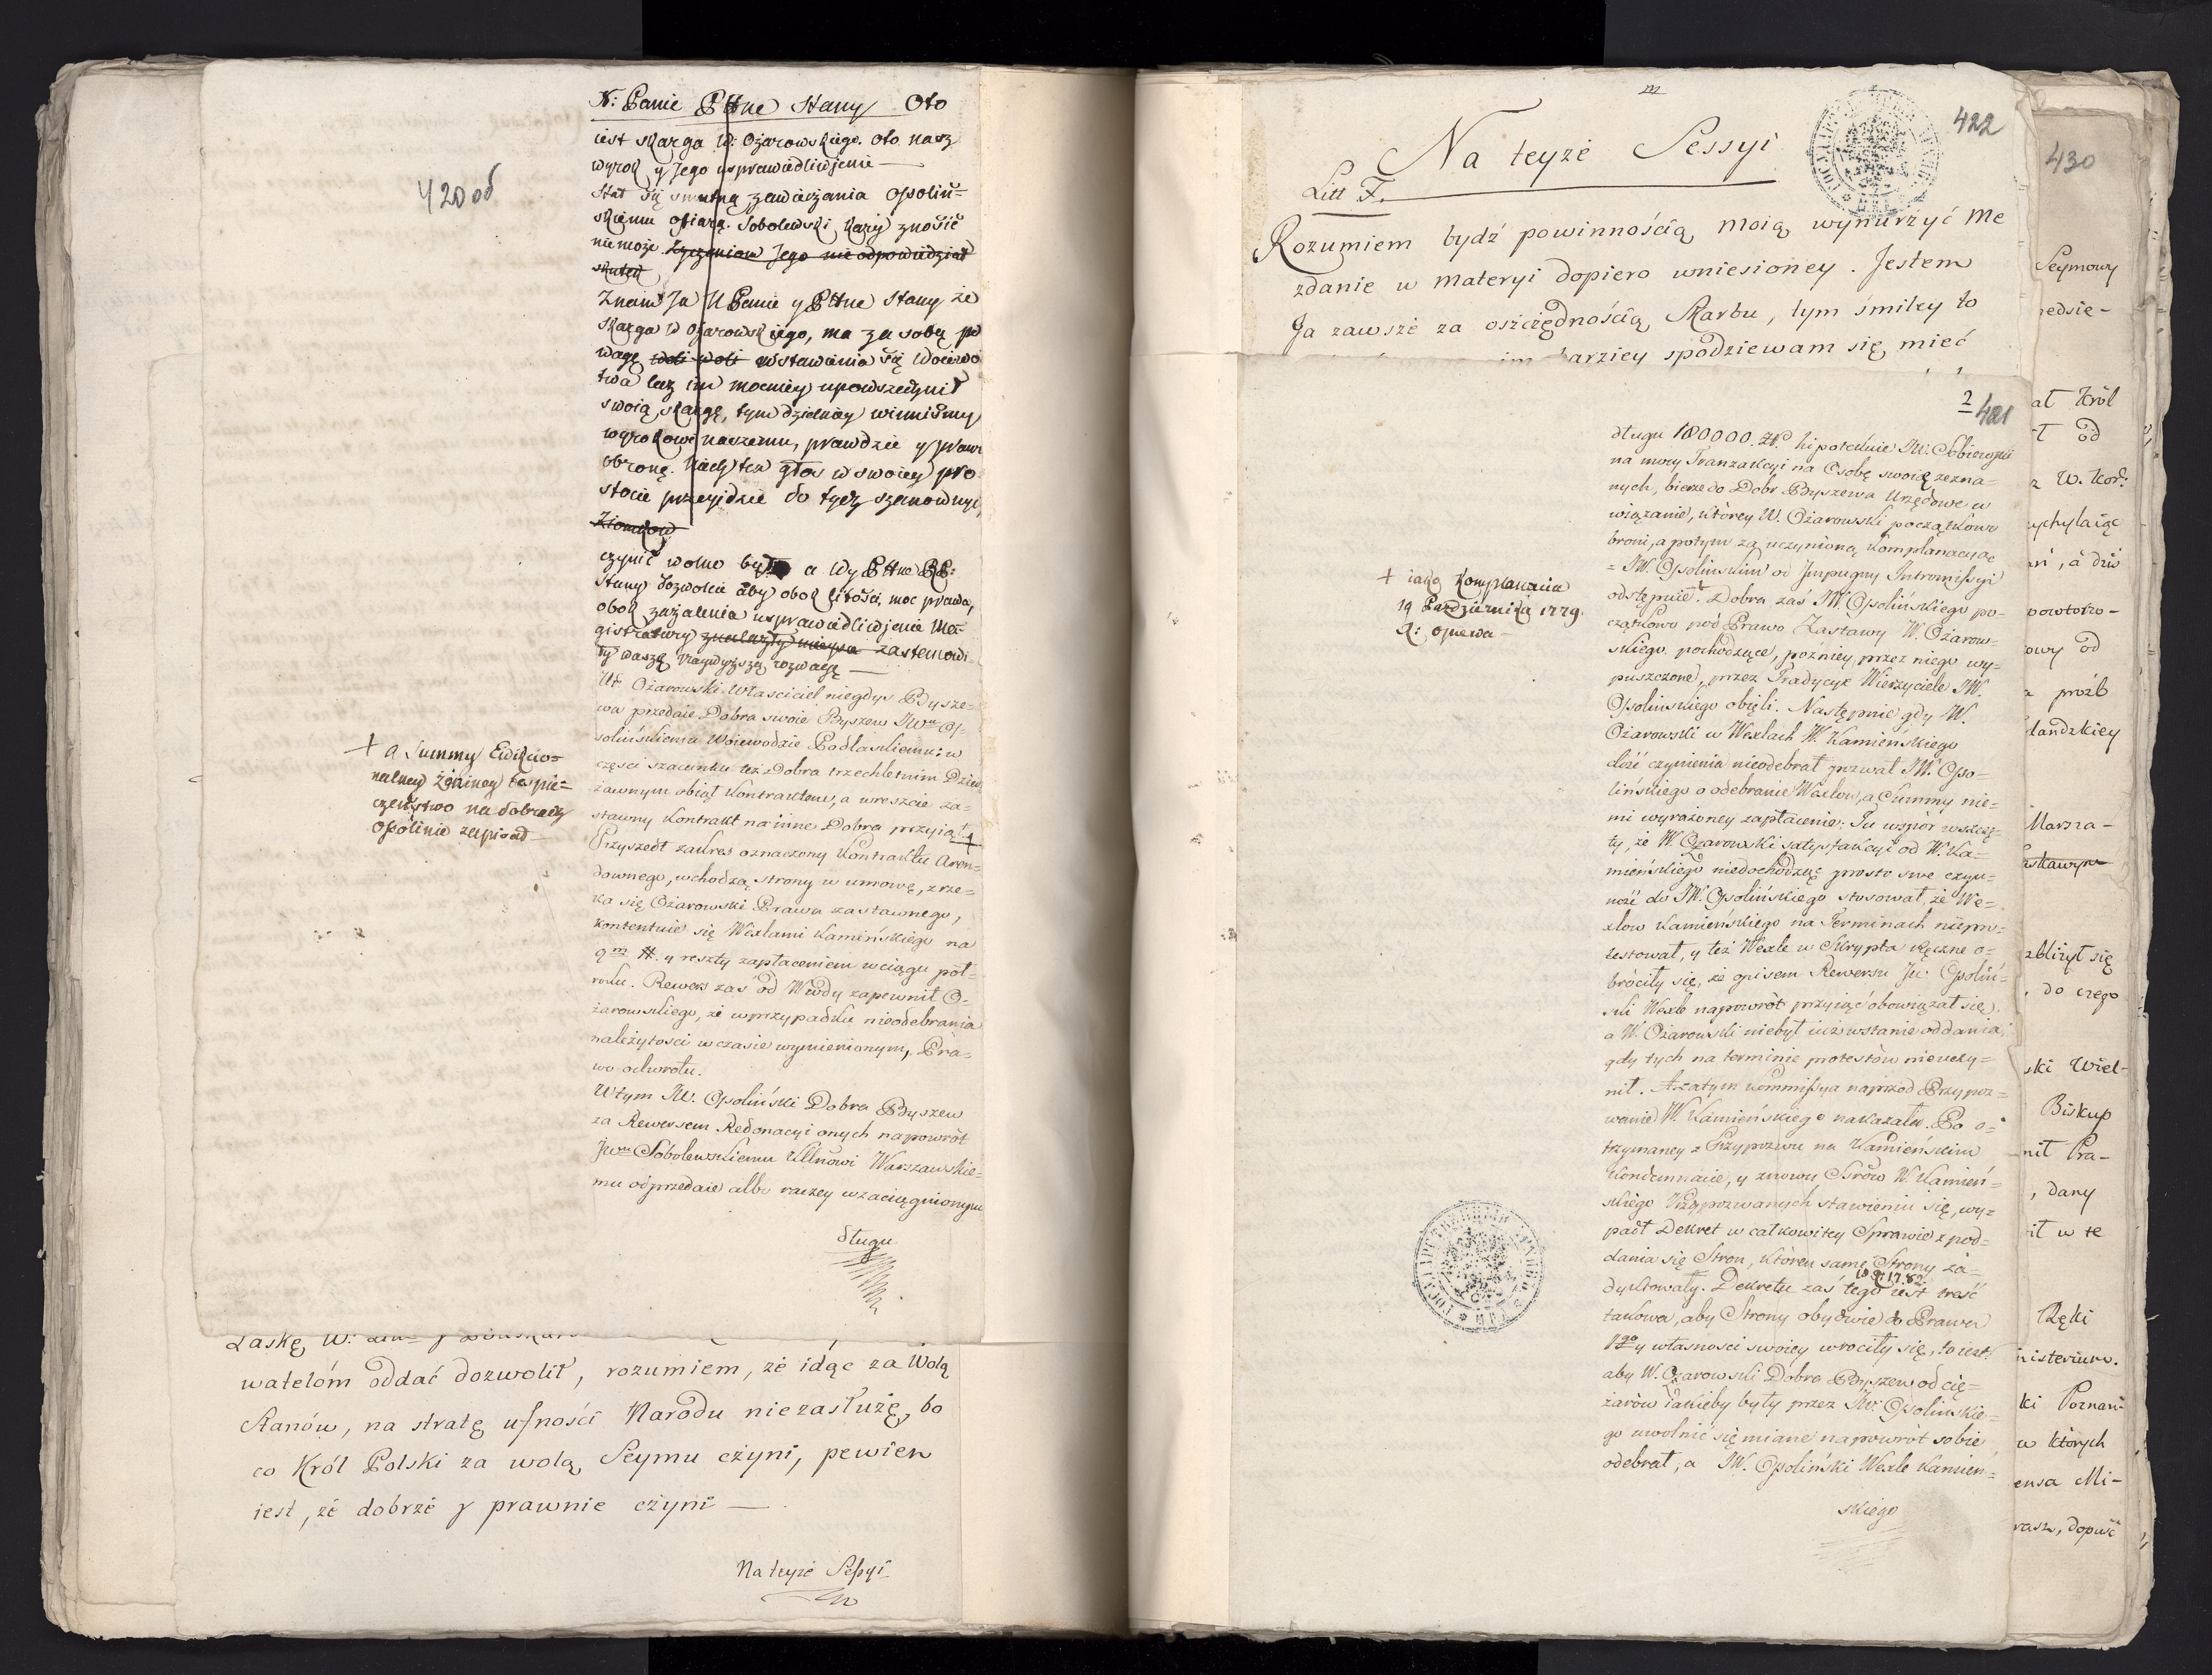 420 об
N: Panie PHne Stany Oto
iest skarga W: Ożarowskiego. Oto nasz
wyrok y Jego usprawiedliwienie —
Stał się smutną zawierzania Ossoliń=
skiemu ofiarą. Sobolewski, każy znosić
nie może. Życzeniom Jego nie odpowiedział
skutek
Znam Ja N Panie y PHne Stany że
skarga W Ożarowskiego, ma za sobą po
wagę woli woli wstawienia się Woiewo
twa lecz im mocniey upowszechnił
swoią skargę, tym dzielniey winniśmy
wyrokowi naszemu, prawdzie y prawu
obronę. Niech ten głos w swoiey pro
stocie przeyjdzie do tych szanownych
Ziomków
czynić wolno było a Wy PHne RP:
Stany dozwolcie aby obok litości, moc prawa,
obok zażalenia usprawiedliwienie Ma=
gistratury znalazły mieysce zastanowi
ły waszą naywyższą rozwagę —
W Ożarowski Własciciel niegdys Bysze=
wa przedaie Dobra swoie Byszew JWmu Os=
solińskiemu Woiewodzie Podlaskiemu: w
części szacunku też Dobra trzechletnim Dzier
żawnym obiął Kontraktem, a wreszcie za=
stawny Kontrakt na inne Dobra przyiął +
+ a Summy Ewikcio=
nalney żadney bespie=
czeństwo na dobrach
Ossolinie zapisał
Przyszedł zakres oznaczony Kontraktu Aren=
downego, wchodzą strony w umowę, zrze=
ka się Ożarowski Prawa zastawnego,
kontentuie się Wexlami Kamińskiego na
9m #. y reszty zapłaceniem w ciągu pół=
roku. Rewers zas od Wwdy zapewnił O=
żarowskiego, że w przypadku nieodebrania
należytości w czasie wymienionym, Pra=
wo odwrotu.
W tym JW. Ossoliński Dobra Byszew
za Rewersem Redonacyi onych napowrót
JWmu Sobolewskiemu Kllnowi Warszawskie=
mu odprzedaie albo raczey w zaciągnionym
długu
Łaskę W:
watelóm oddać dozwolił, rozumiem, że idąc za Wolą
Stanów, na stratę ufności Narodu niezasłużę, bo
co Król Polski za wolą Seymu czyni, pewien
iest, że dobrze y prawnie czyni —
Na teyże Sessyi
422
Na teyże Sessyi
Litt F.
Rozumiem bydź powinnością moią wynurzyć Me
zdanie w Materyi dopiero wniesioney. Jestem
Ja zawsze za oszczędnością Skarbu, tym śmiley to
im barziey spodziewam się mieć
2
421
długu 180000. Złp. hipotekuie JW: Sobierayski
na mocy Tranzakcyi na Osobę swoię zezna=
nych, bierze do Dobr Byszewa Urzędowe w
wiązanie, którey W. Ożarowski początkowo
broni, a potym za uczynioną Komplanacyą
= JW. Ossolinskim od Impugny Intromissyi
odstępuie +. Dobra zaś JW. Ossolińskiego po=
+ iako Komplanacia
19 Października 1779.
R: opiewa —
czątkowo pod Prawo Zastawy W. Ożarow=
skiego pochodzące, pozniey przez niego wy=
puszczone, przez Tradycye Wierzyciele JW.
Ossolinskiego obięli. Następnie gdy W.
Ożarowski w Wexlach W. Kamieńskiego
dość czynienia nieodebrał pozwał JW. Osso=
lińskiego o odebranie Wexlow, a Summy nie=
mi wyrażoney zapłacenie: Tu wspór wszczę=
ty, że W. Ożarowski satysfakcyi od W. Ka=
mieńskiego niedochodząc prosto swe czyn=
ność do JW. Ossolińskiego stosował, że We=
xlow Kamieńskiego na Terminach niepro=
testował, y też Wexle w Skrypta ręczne o=
bróciły się, że opisem Rewersu JW: Ossoliń=
ski Wexle napowrót przyiąć obowiązał się.
a W. Ożarowski niebył iuż w stanie oddania,
gdy tych na terminie protestów nieuczy=
nił. A zatym Kommissya naprzod Przypoz=
wanie W. Kamieńskiego nakazała. Po o=
trzymaney z Przypozwu na Kamieńskim
Kondemnacie, y znowu Stron W. Kamień=
skiego Przypozwanych stawieniu się, wy=
padł Dekret w całkowitey Sprawie z pod=
dania się Stron, któren same Strony za=
dyktowały. Dekretu zaś tego iest treść
takowa, aby Strony obydwie do Prawa
1go y własnosci swoiey wrociły się, to iest
aby W. Ożarowski Dobra Byszew od cię=
żarów iakieby były przez JW: Ossolinskie=
go uwolnić się miane napowrot sobie
odebrał, a JW. Ossoliński Wexle Kamień=
skiego
430
Seymowy
ał Król
ił od
z W. Kor:
uchylaiąc
powtoro-
owy od
a prośb
landzkiey
Marsza-
zbliżył się
, do czego
ski Wiel-
Biskup
nił Pra-
, dany
ił w te
Ręki
inisterium.
ki Poznań=
w których
ensa Mi-